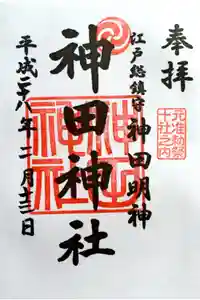 奉拝
元准勅祭
十社之内
江戸総鎮守 神田明神
神田神社
平成二八年二月十三日
神田
神社